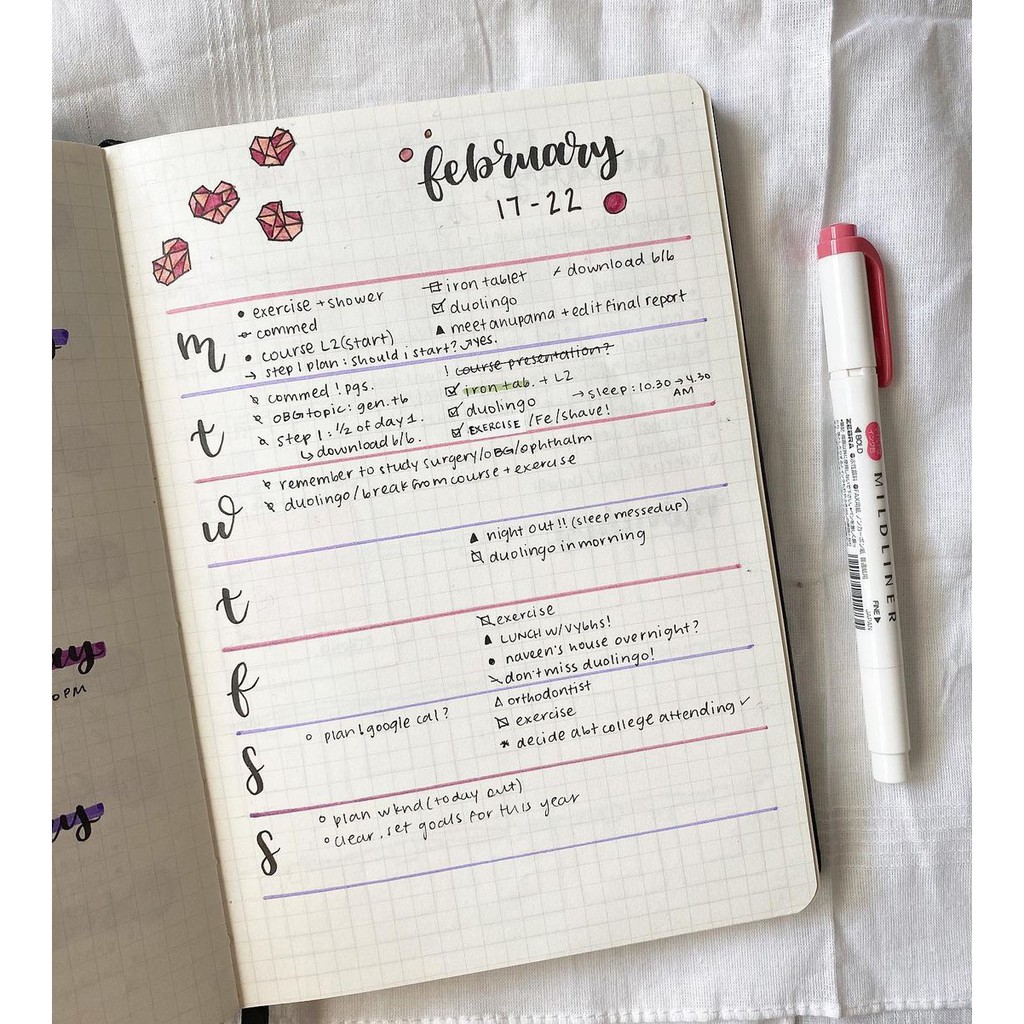 february
17-22
m
exercise + shower
commed
course L2 (start)
→ step 1 plan : should i start? ↗yes.
iron tablet
duolingo
meet anupama + edit final report
download b/b
t
commed ! pgs.
OBG topic : gen. tb
step 1 : 1/2 of day 1.
↳ download b/b.
! course presentation?
iron tab. + L2
duolingo
EXERCISE /Fe/shave!
→ sleep : 10.30 → 4.30
AM
w
remember to study surgery/OBG/ophthalm
duolingo / break from course + exercise
t
night out!! (sleep messed up)
duolingo in morning
f
exercise
LUNCH W/ VYBHS!
naveen's house overnight?
don't miss duolingo!
s
plan google cal?
orthodontist
exercise
decide abt college attending ✓
s
plan wknd (today out)
clear, set goals for this year
ay
0PM
y
◀ BOLD
ZEBRA
MILDLINER
FINE ▶
JAPAN